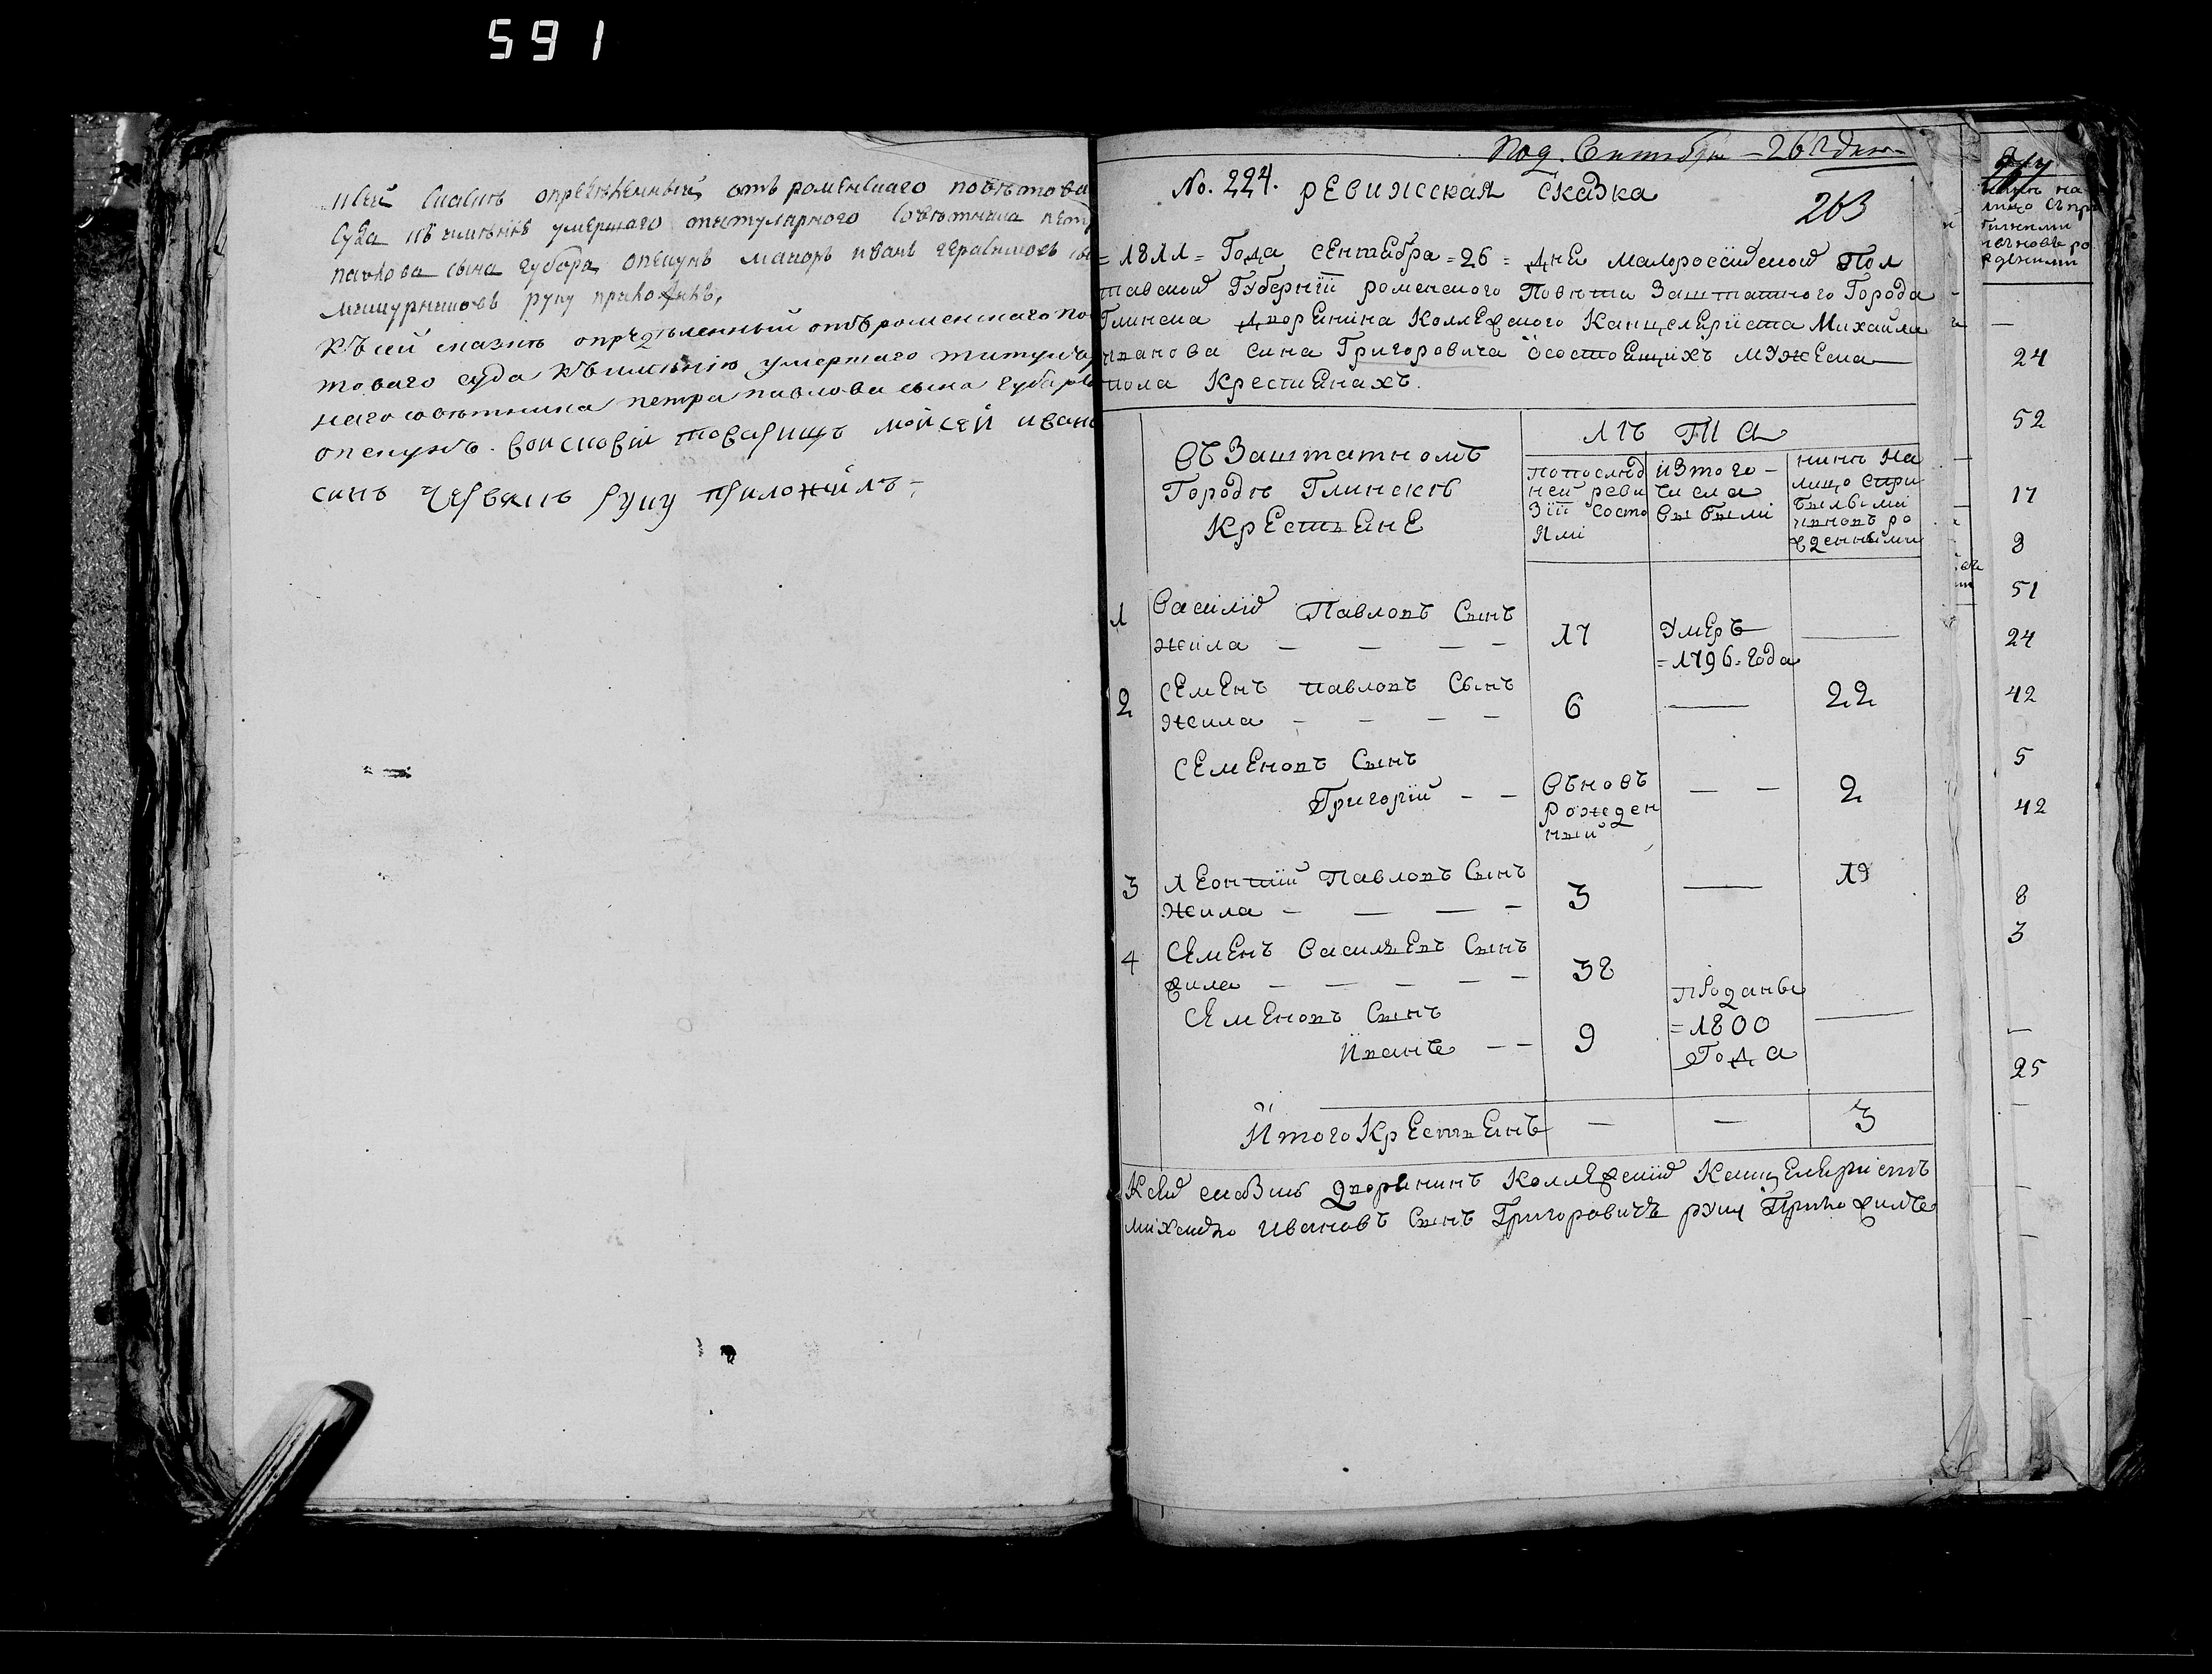 591
къ сей сказкѣ опредѣленный отъ роменскаго повѣтова
суда къ имѣнію умершаго титулярного совѣтника петр
павлова сына губара, опекунъ маиоръ иванъ герасимовъ
руку приложилъ,
Къ сей сказке опредѣленный отъ роменскаго по
товаго суда къ имѣнію умершаго титуляр
наго совѣтника петра павлова сына губара
опекунъ. войсковій товарищъ мойсей ивано
синъ Червакъ руку приложилъ
Под. Сентября - 26 г дня
No. 224. РЕВИЖСКАЯ СКАЗКА
263
= 1811 = Года СЕНтЕбра = 26 = днЕ Малороссійской Пол
тавской Губерніи роменского Повѣта Заштатного Города
Глинска дворЕнина КоллЕжского КанцЕлЕриста Михайла
иванова сина Григоровича ѡсостоЕщихъ МужЕска
пола КрЕстиЕнахъ.
ЛѢТА
Въ Заштатномъ
Городѣ Глинскѣ
КрЕстьЕнЕ
попослѣд
ней реви
зіи состо
Яли
изтого -
числа
выбыли
нинѣ На
лицо спри
былыми
иновъ ро
жденными
1 Василій Павловъ Сынъ
Жила — — — —
17
УмЕръ
= 1796 = года
—
2 СЕмЕнъ Павловъ Сынъ
Жила - - - -
6 — 22
СЕмЕновъ Сынъ
Григорій - -
Вновъ
Рожден
ный
— — 2
3 ЛЕонтій Павловъ Сынъ
Жила - — — -
3 — 19
4 СЕмЕнъ ВасильЕвъ Сынъ
жила — — — — -
38
СЕмЕновъ Сынъ
Иванъ - -
9
проданы
= 1800
Года
—
Итого КрЕстьЕнъ — — 3
КсЕй сказки дворЕнинъ КоллЕжскій КанцЕлЕристъ
михайло Ивановъ Сынъ Григоровичъ руку Приложилъ
нинѣ на
лицо съпри
былыми
ивновъ ро
ждеными
—
24
52
17
8
51
24
42
5
42
8
3
—
25